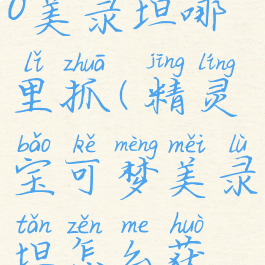 0美录坦哪
lǐ zhuā jīng líng
里抓(精灵
bǎo kě mèng měi lù
宝可梦美录
tǎn zěn me huò
坦怎么获